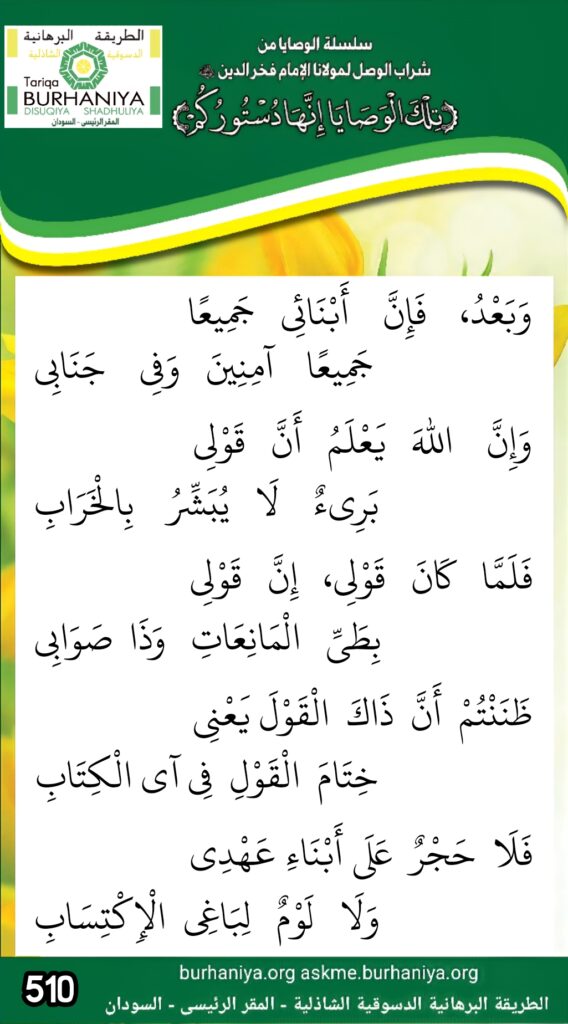 الطريقة البرهانية
الدسوقية الشاذلية
Tariqa
BURHANIYA
DISUQIYA SHADHULIYA
المقر الرئيسى - السودان
سلسلة الوصايا من
شراب الوصل لمولانا الإمام فخر الدين
﴿تِلْكَ الْوَصَايَا إِنَّهَا دُسْتُورُكُمْ﴾
وَبَعْدُ، فَإِنَّ أَبْنَائِى جَمِيعًا
جَمِيعًا آمِنِينَ وَفِى جَنَابِى
وَإِنَّ اللهَ يَعْلَمُ أَنَّ قَوْلِى
بَرِىءٌ لَا يُبَشِّرُ بِالْخَرَابِ
فَلَمَّا كَانَ قَوْلِى، إِنَّ قَوْلِى
بِطَىِّ الْمَانِعَاتِ وَذَا صَوَابِى
ظَنَنْتُمْ أَنَّ ذَاكَ الْقَوْلَ يَعْنِى
خِتَامَ الْقَوْلِ فِى آى الْكِتَابِ
فَلَا حَجْرٌ عَلَى أَبْنَاءِ عَهْدِى
وَلَا لَوْمٌ لِبَاغِى الْإِكْتِسَابِ
510
burhaniya.org askme.burhaniya.org
الطريقة البرهانية الدسوقية الشاذلية - المقر الرئيسى - السودان